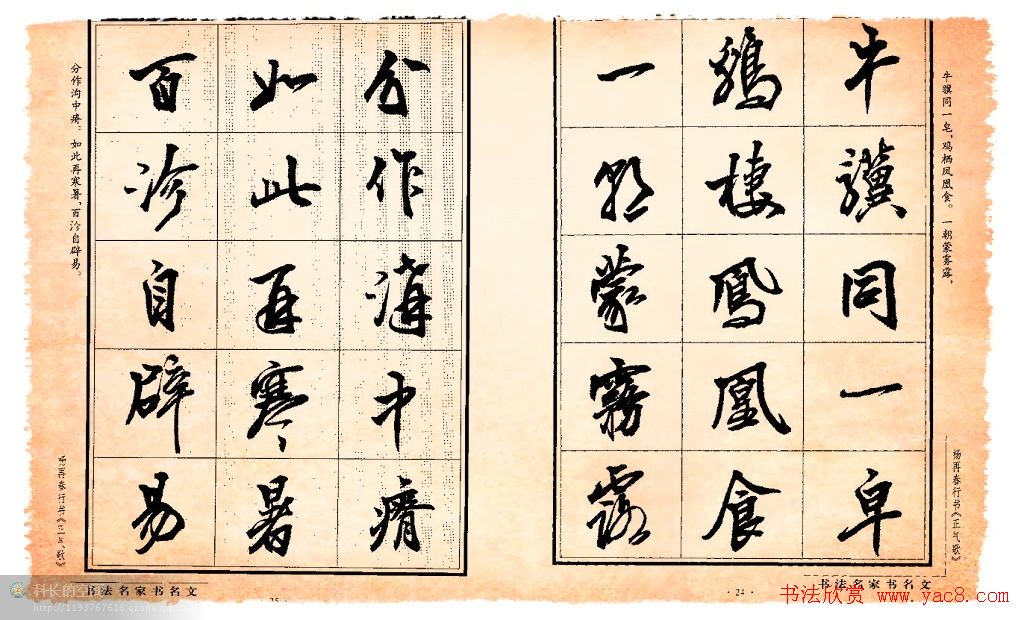 牛骥同一皂，鸡栖凤凰食。一朝蒙雾露，
牛驥同一皁
鷄棲鳳凰食
一朝蒙霧露
杨再春行书《正气歌》
书法名家书名文
·24·
分作沟中瘠。如此再寒暑，百沴自辟易。
分作溝中瘠
如此再寒暑
百沴自辟易
杨再春行书《正气歌》
书法名家书名文
25
科长的空
http://1193767618.qzone.qq
书法欣赏 www.yac8.com